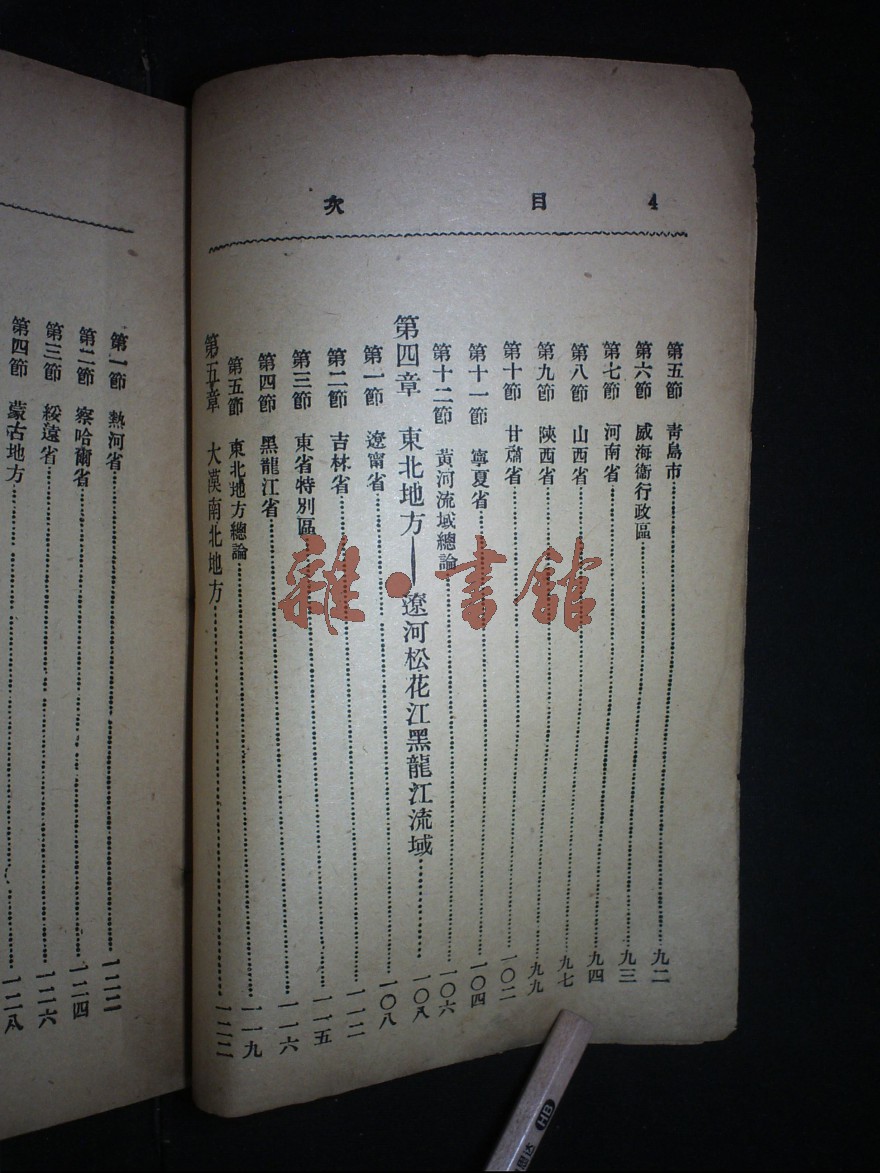 4 目 次
第五節 青島市……九二
第六節 威海衞行政區……九三
第七節 河南省……九四
第八節 山西省……九七
第九節 陝西省……九九
第十節 甘肅省……一〇二
第十一節 寧夏省……一〇四
第十二節 黃河流域總論……一〇六
第四章 東北地方——遼河松花江黑龍江流域……一〇八
第一節 遼甯省……一〇八
第二節 吉林省……一一二
第三節 東省特別區……一一五
第四節 黑龍江省……一一六
第五節 東北地方總論……一一九
第五章 大漠南北地方……一二二
第一節 熱河省……一二二
第二節 察哈爾省……一二四
第三節 綏遠省……一二六
第四節 蒙古地方……一二八
雜·書館
HB